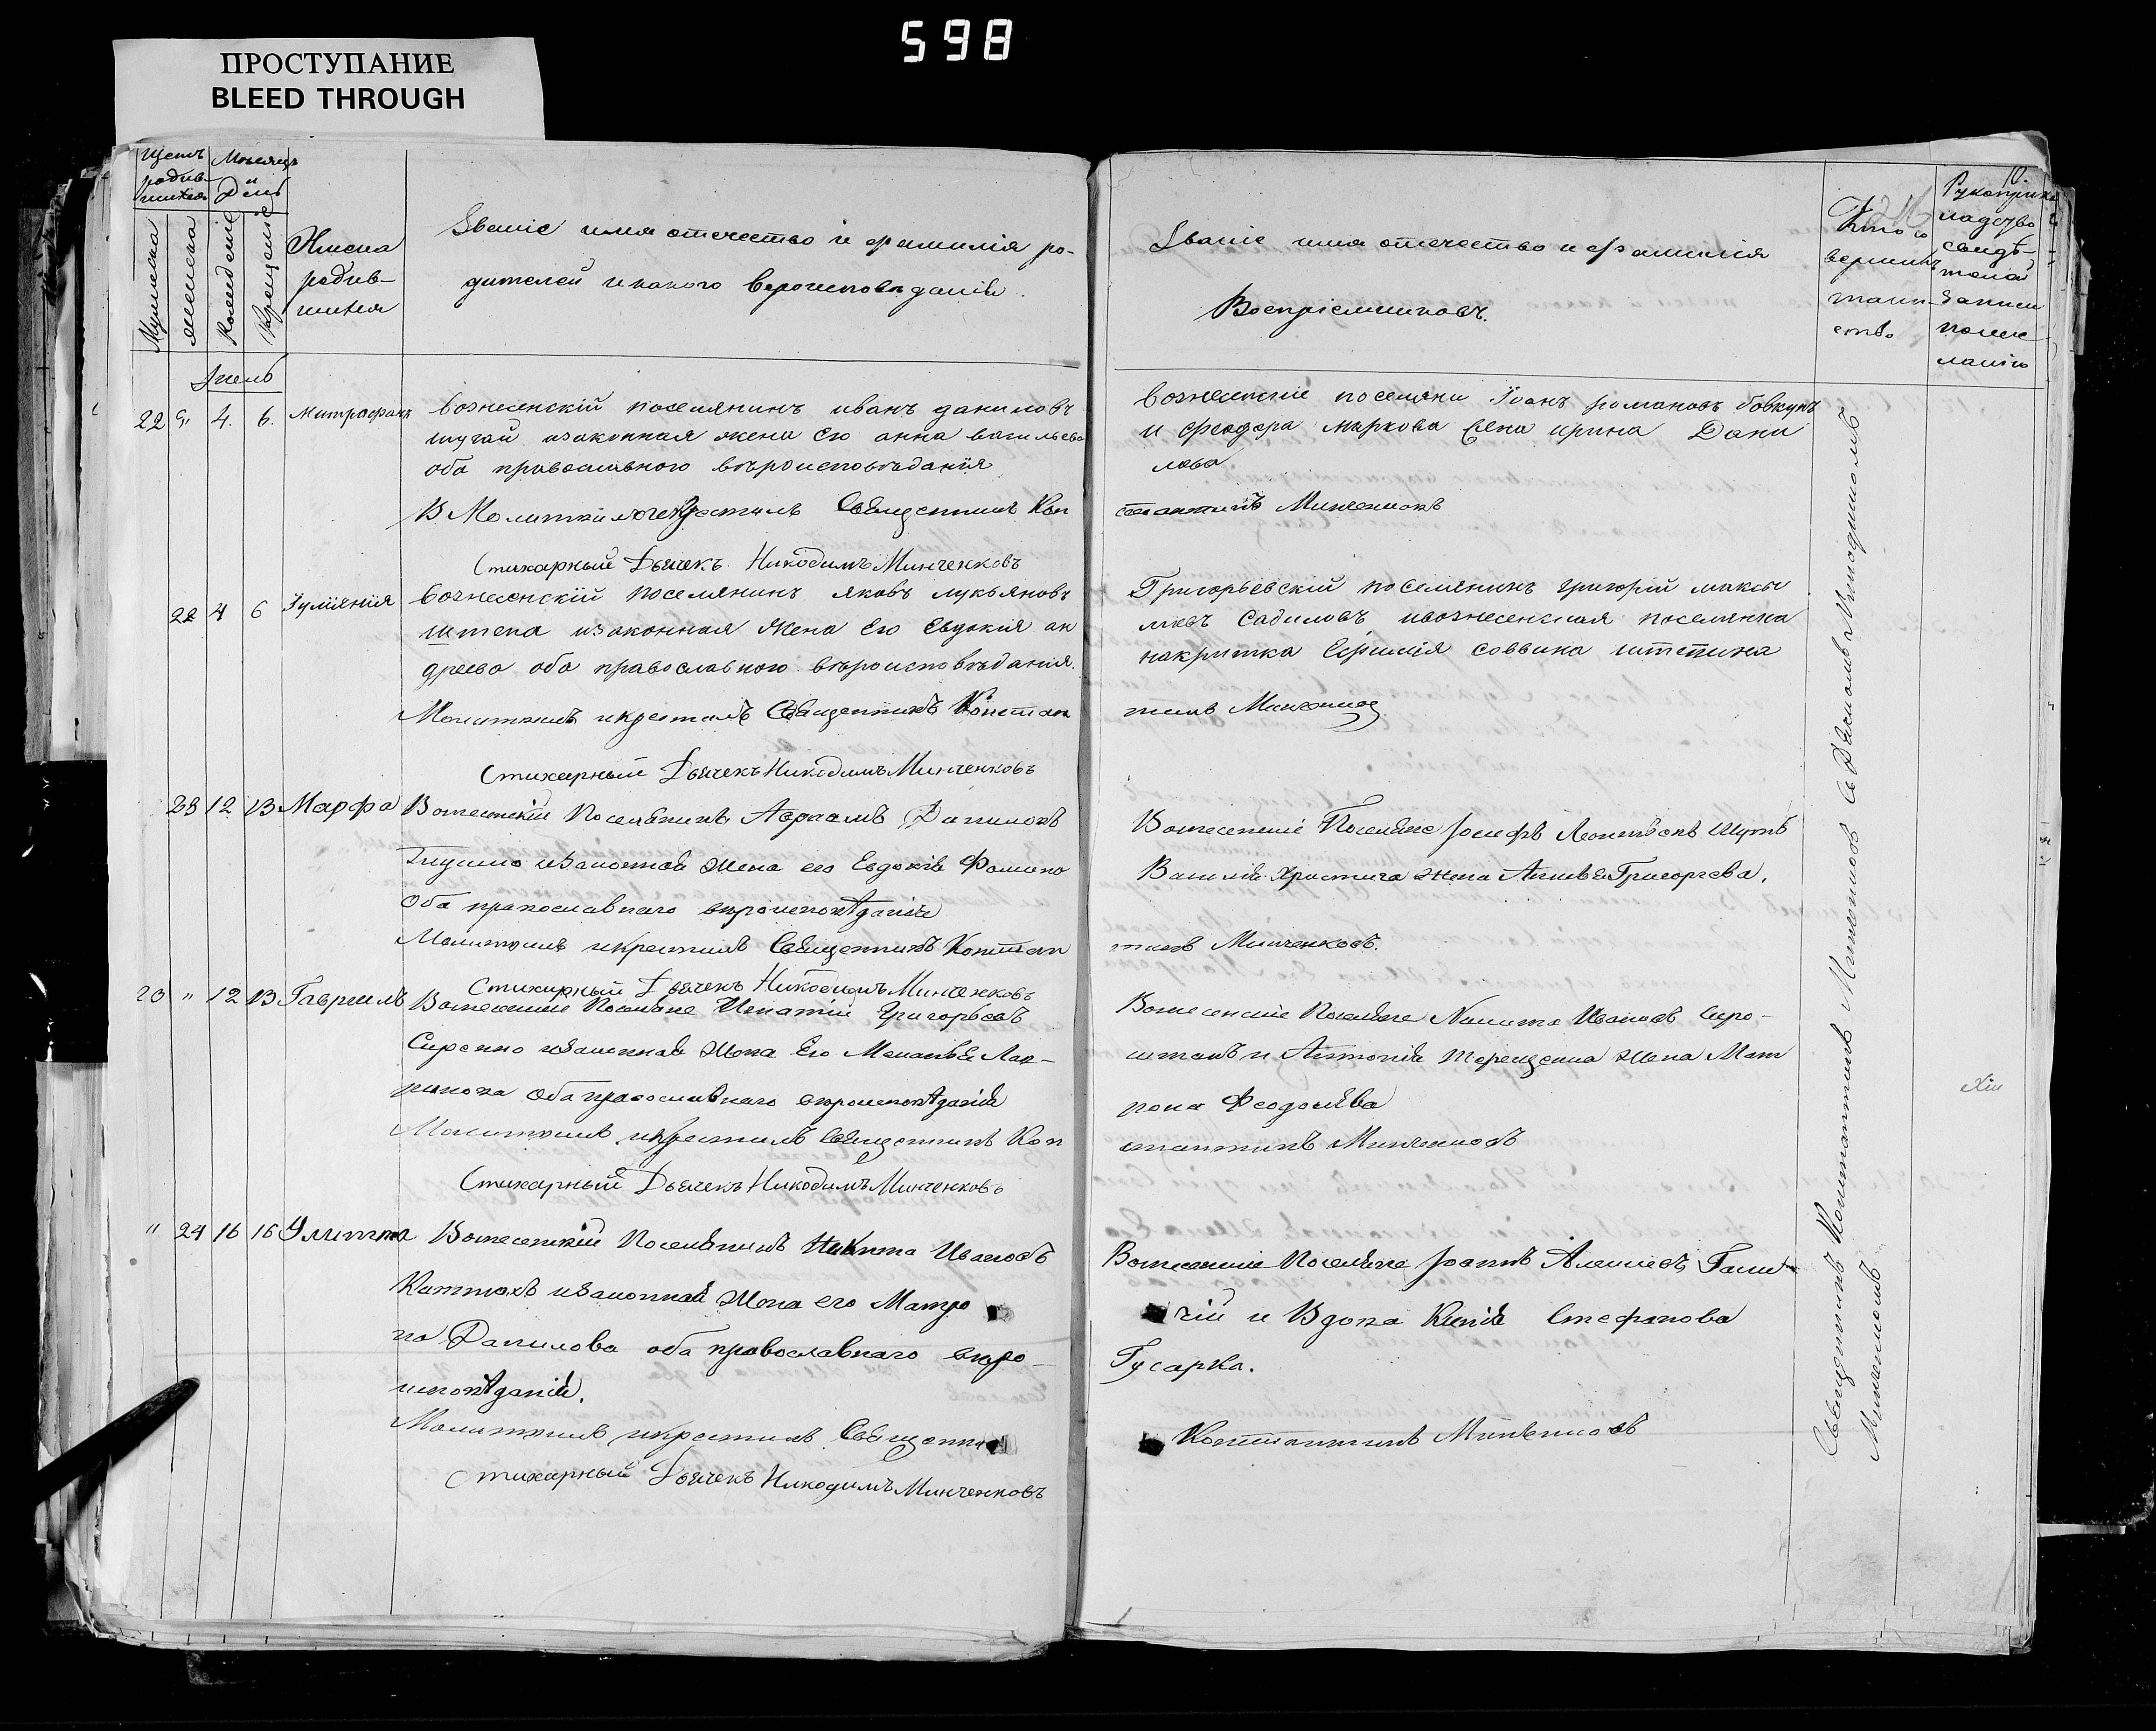 598
ПРОСТУПАНИЕ
BLEED THROUGH
Щетъ родив-шихся
Мѣсяцъ и День
Мужеска
женска
Рожденіе
Крещеніе
Имена
родив-
шихся
Званіе имя отечество и фамилія ро-
дителей и какого вероисповѣданія.
Званіе имя отечество и фамилія
Воспріемниковъ.
Кто со
вершилъ
таин-
ство
Рукоприк
ладство
свидѣ-
телей
записи
по же-
ланію
22 4. 6. Митрофанъ
вознесенскій поселянинъ иванъ даниловъ
шугай изаконная жена его анна васильева
оба православного вѣроисповѣданія
Молитвилъ и крестилъ Священникъ Кон
Стихарный Дьячекъ Никодимъ Минченковъ
вознесенскіе поселяни Іоанъ романовъ бовкунъ
и феодора маркова жена ирина Дани
лова
стантинъ Минченковъ
22 4 6 Іулиянія
вознесенскій поселянинъ яковъ лукьяновъ
штепа изаконная жена его Евдокия ан
дреева оба православного вѣроисповѣданія.
Молитвилъ икрестилъ Священникъ Констан
Стихарный Дьячекъ Никодимъ Минченковъ
Григорьевскій поселянинъ григорій макси
мовъ Садиловъ ивознесенская поселянка
тинъ Минченков
23 12 13 Марфа
Вознесенскій Поселянинъ Авраамъ Даниловъ
изаконная жена его Евдокія Фомина
Оба православнаго вѣроисповѣданія
Молитвилъ икрестилъ Священникъ Констан
Стихарный Дьячекъ Никодимъ Минченковъ
Вознесенскіе Поселяне Іосифъ Леонтіевъ
жена Григорьева.
тинъ Минченковъ.
23 " 12 13 Гавриилъ
Вознесенскіе Поселяне Игнатій Григорьевъ
Сиренко изаконная жена Его Меланія Лав-
ринова Оба православнаго вѣроисповѣданія
Молитвилъ икрестилъ Священникъ Кон
Стихарный Дьячекъ Никодимъ Минченковъ
Вознесенскіе Поселяне Никита Ивановъ Сиро-
штанъ и Антонія Терещенка жена Мат
рона Феодосіева
стантинъ Минченковъ
" 24 16 16 Улитта
Вознесенскій Поселянинъ Никита Ивановъ
изаконная жена его Матро
на Данилова оба православнаго вѣро-
исповѣданія.
Молитвилъ икрестилъ Священни
Стихарный Дьячекъ Никодимъ Минченковъ
Вознесенскіе Поселяне Іоаннъ Алексіевъ Гали
чій и Вдова Ксенія Стефанова
Гусарка.
Константинъ Минченковъ
Священникъ Константинъ Минченковъ съ Дьячкомъ Никодимомъ
Минченковымъ